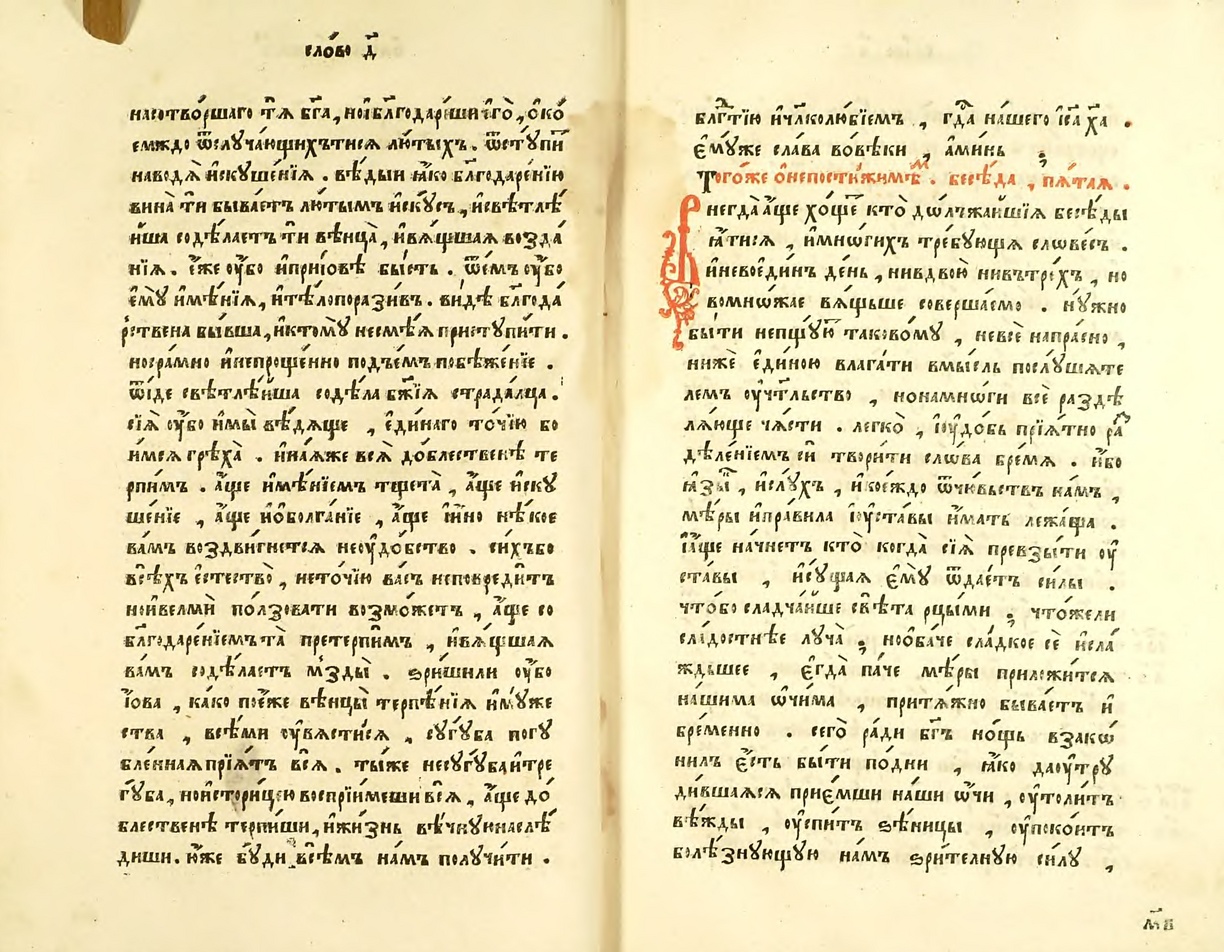 сло́во д҃
насотво́ршаго тѧ̀ бг҃а, ноиблагодари́ши єго̀, ѻ҆ко́
емждо ѿслꙋча́ющихътисѧ лю́тыхъ. ѿстꙋпи
наводѧ̀ и҆скꙋше́нїѧ. вѣ́дыи ꙗ҆́ко благодаре́нїю
вина̀ ти быва́етъ лю́тымъ и҆скꙋ́съ, исвѣтлѣ́
иша содѣ́лаетъ ти вѣнца̀, и҆вѧ́щшаѧ возда
нїѧ. є҆́же ᲂу҆́бо и҆прїиовѣ бы́сть. ѿе́мъ ᲂу҆́бо
є҆мꙋ̀ и҆мѣ́нїѧ, и҆тѣ́лопорази́въ. ви́дѣ благода
рственa бы́вша, иктомꙋ̀ несмѣ́ѧ пристꙋпи́ти.
носра́мно и҆непроще́нно подъе́мъ побѣже́нїе.
ѿи́де свѣтлѣ́йша содѣ́ла бж҃їѧ страда́лца.
сїѧ̀ ᲂу҆́бо и҆мы̀ вѣ́дѧще, є҆ди́наго то́чїю бо
и́мсѧ грѣха̀. и҆ина́ѧже всѧ̀ до́блественѣ те
рпимъ. а҆́ще и҆мѣ́нїемъ тщета̀, а҆́ще и҆скꙋ
ше́нїе, а҆́ще и҆ѻболга́нїе, а҆́ще и҆и́но нѣ́кое
ва́мъ воздви́гнетсѧ неᲂудо́бство. си́хъбо
всѣ́хъ є҆стество̀, нето́чїю ва́съ неповреди́тъ
но́ивелмѝ по́лзовати возмо́жетъ, а҆́ще со
благодаре́нїемъта̀ претерпи́мъ, и҆вѧ́щшаѧ
ва́мъ содѣ́лаетъ мзды̀. ѕри́шили ᲂу҆́бо
і҆́ова, ка́ко по́еже вѣнцы̀ терпѣ́нїѧ и҆мꙋ́же
ства, всѣ́ми ᲂу҆вѧсти́сѧ, сꙋгꙋ́ба погꙋ
бле́ннаѧ прїѧ́тъ всѧ̀. ты́же несꙋгꙋ́баитре
гꙋ́ба, но́истори́цею воспрїи́меши всѧ̀, а҆́ще до́
блественѣ терпи́ши, и҆жи́знь вѣ́чнꙋюнаслѣ́
диши. ю҆́же бꙋ́ди всѣ́мъ на́мъ полꙋчи́ти.
блгⷣтїю и҆члколю́бїемъ, гдⷭ҇а на́шего і҆са ха.
є҆мꙋ́же сла́ва вовѣ́ки, а҆ми́нь
Того́же ѻ҆непости́жимѣмъ. бесѣ́да, пѧ́таѧ.
Не́гда а҆́ще хо́щетъ кто̀ дѡлжа́йшїѧ бесѣ́ды
ꙗ҆́тисѧ, и҆мно́гихъ тре́бꙋющѧ слѡве́съ.
и҆невое҆ди́нъ де́нь, нивдвою̀ нивътре́хъ, но
вомнѡ́жае вѧ́щьше соверша́емо. нꙋ́жно
бы́ти непщꙋ́ю таково́мꙋ, невсѐ напра́сно,
нижѐ є҆ди́ною влага́ти вмы́сль послꙋшѧ́те
лемъ ᲂу҆чт҃льство, нонамно́ги всѐ раздѣ
лѧ́юще ча́сти. легко̀, и҆ᲂудо́бь прїѧ́тно ра
дѣле́нїемъ си́ твори́ти сло́ва бре́мѧ. и҆́бо
ꙗ҆зы́къ, и҆слꙋ́хъ, и҆кое́ждо ѿчю́вьствъ на́мъ,
мѣ́ры и҆пра́вила і҆ᲂуста́вы и҆́мать лежа́ща.
і҆а҆́ще начне́тъ кто̀ когда̀ сїѧ̀ превзы́ти ᲂу҆
ста́вы, и҆сꙋ́щаѧ є҆мꙋ̀ ѿдае́тъ си́лы.
что́бо сладча́йше свѣ́та рцы́ми; что́жели
сла́достнѣе лꙋча̀; нооба́че сла́дкое сѐ и҆сла́
ждьшее, є҆гда̀ па́че мѣ́ры приложи́тсѧ
на́шима ѻ҆чи́ма, притѧ́жно быва́етъ и҆
бре́менно. сего̀ ра́ди бг҃ъ но́щь взакѡ
ни́лъ є҆́сть бы́ти подни, ꙗ҆́ко даᲂутрꙋ
ди́вшаѧсѧ прие́мши на́ши ѻ҆́чи, ᲂу҆толи́тъ
вѣ́жды, ᲂу҆спи́тъ ѕѣ́ницы, ᲂу҆поко́итъ
болѣ́знꙋющꙋю на́мъ ѕри́телнꙋю си́лꙋ,